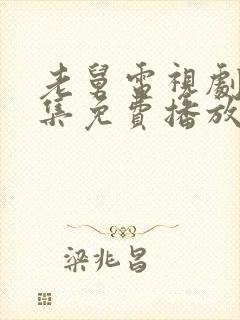 老舅電視劇
集免費播放
梁兆昌